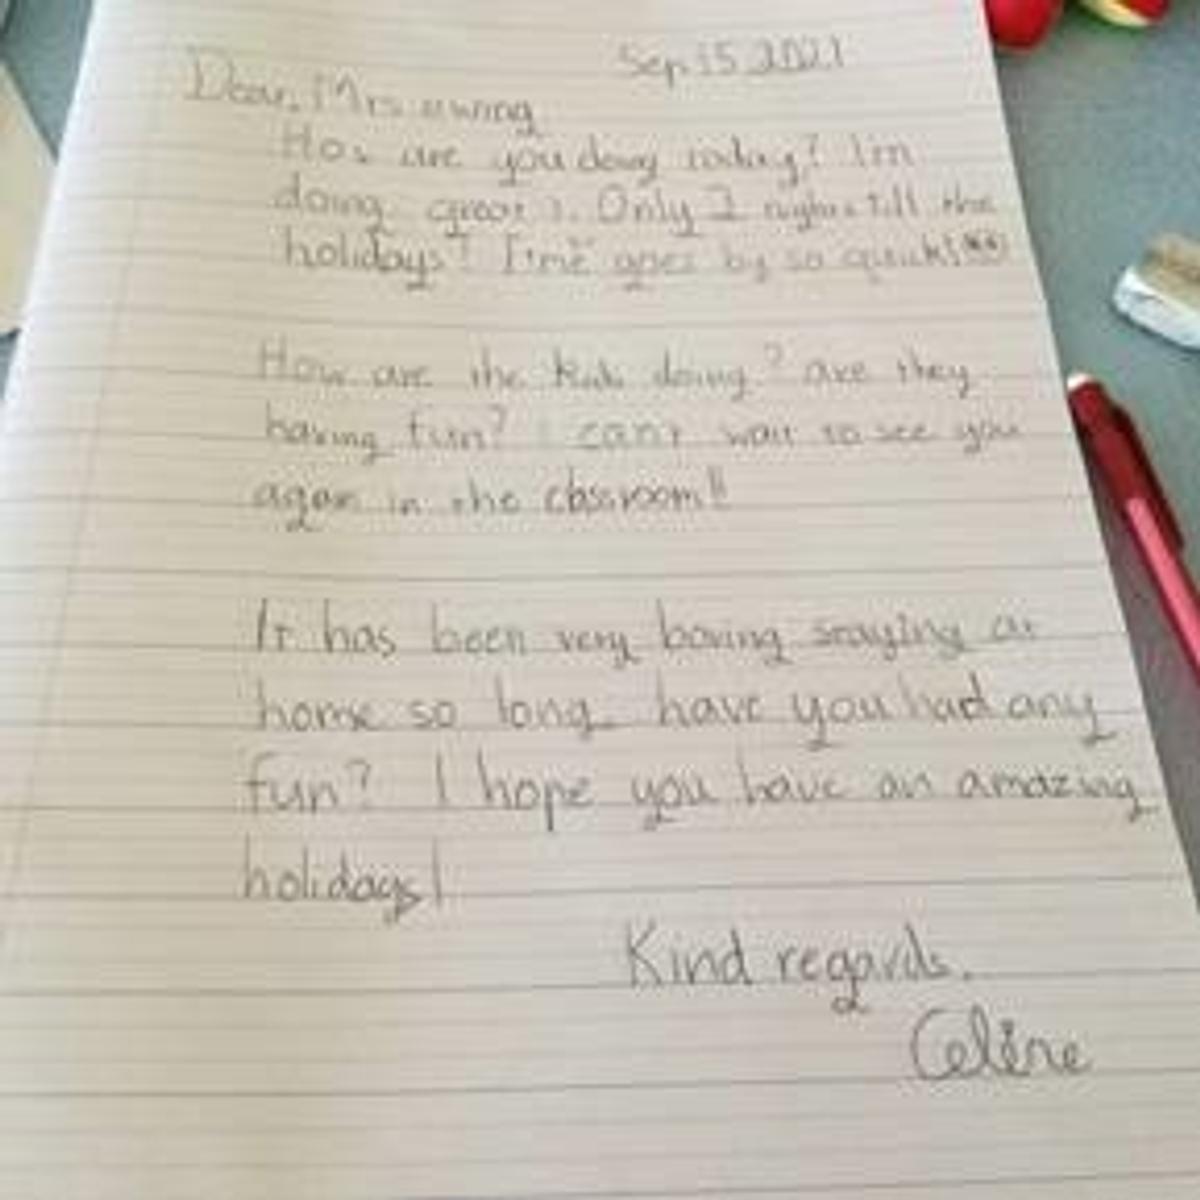 Sep 15 2021
Dear, Mrs ewing
How are you doing today? I'm
doing great :). Only 2 nights till the
holidays! Time goes by so quick!
How are the kids doing? are they
having fun? I can't wait to see you
again in the classroom!!
It has been very boring staying at
home so long have you had any
fun? I hope you have an amazing
holidays!
Kind regards.
Celine